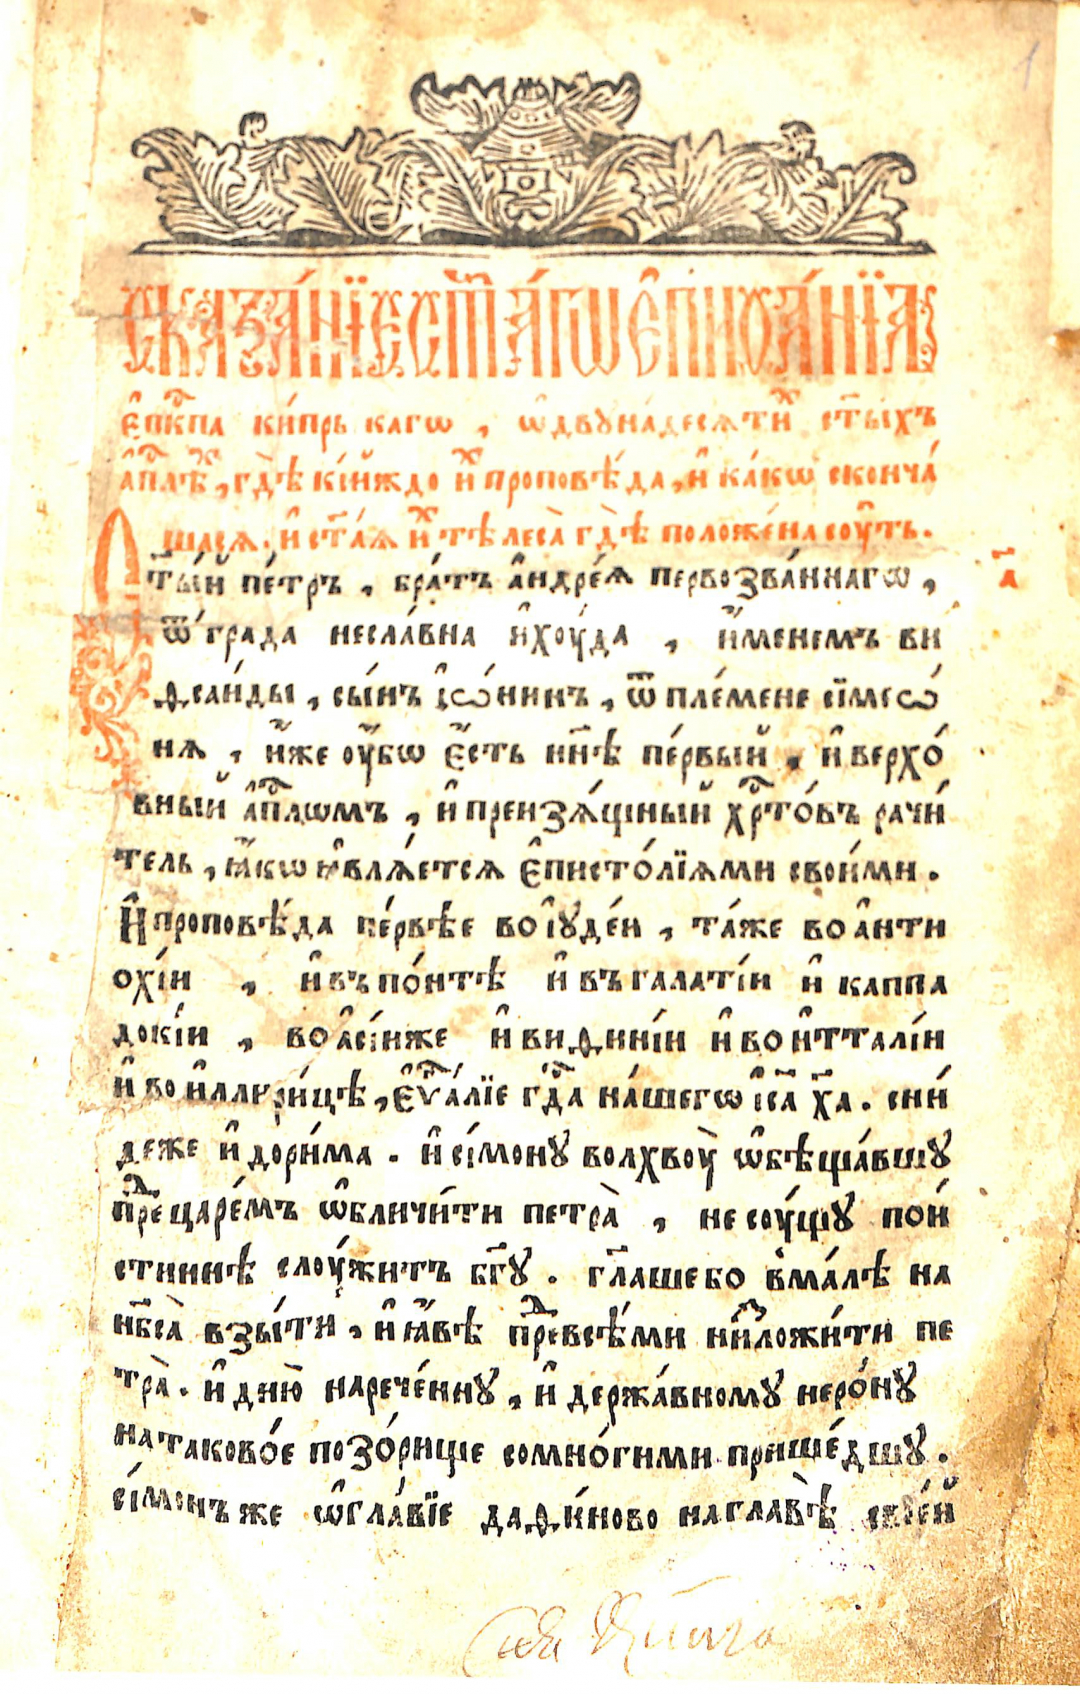 1
сказа́нїе ст҃а́гѡ є҆пифа́нїа
є҆пⷭ҇кпа ки́прьскагѡ , ѡ҆двуна́десѧтиⷯ ст҃ы́хъ
а҆пⷭ҇лѣⷯ , гдѣ̀ кі́йждо иⷯ проповѣ́да , и҆ ка́кѡ сконча́
шасѧ . и҆ ст҃а́ѧ иⷯ тѣлеса̀ гдѣ̀ положе́на сꙋ́ть .
Ст҃ы́й пе́тръ , бра́тъ а҆ндре́ѧ первозва́ннагѡ ,
а҃
ѿ гра́да несла́вна и҆хꙋ́да , и҆́менемъ ви
ѳсаи́ды , сы́нъ і҆ѡ́нинъ , ѿ пле́мене сїмеѡ́
нѧ , и҆́же ᲂу҆́бѡ є҆́сть нн҃ѣ пе́рвый , и҆ верхо́
вный а҆пⷭ҇лѡмъ , и҆ преизѧ́щный хрⷭ҇то́въ рачи́
тель , ꙗ҆́кѡ ꙗ҆влѧ́етсѧ є҆писто́лїѧми свои́ми .
И҆ проповѣ́да пе́рвѣе во і҆уде́и , та́же во а҆нти
охі́и , и҆ въ по́нтѣ и҆ въ галаті́и и҆ каппа
докі́и , во а҆сі́иже и҆ виѳині́и и҆ во и҆тталі́и
и҆ во и҆ллири́цѣ , є҆ѵⷢ҇а́лїе гдⷭ҇а на́шегѡ і҆сⷭ҇а хⷭ҇а . сни́
деже и҆ до ри́ма . и҆ сі́мону волхвꙋ̀ ѡ҆бѣща́вшу
преⷣ царе́мъ ѡ҆бличи́ти петра̀ , не сꙋ́щу пои́
стиннѣ слꙋ́житъ бг҃у . гл҃аше бо вма́лѣ на
нб҃са̀ взы́ти , и҆ ꙗ҆́вѣ преⷣ всѣ́ми ни҆зложи́ти пе
тра̀ . и҆ дню̀ нарече́нну , и҆ держа́вному неро́ну
на таково́е позо́рище со мно́гими прише́дшу .
сі́монъ же ѡ҆гла́вїе даѳи́ново на главѣ̀ свое́й